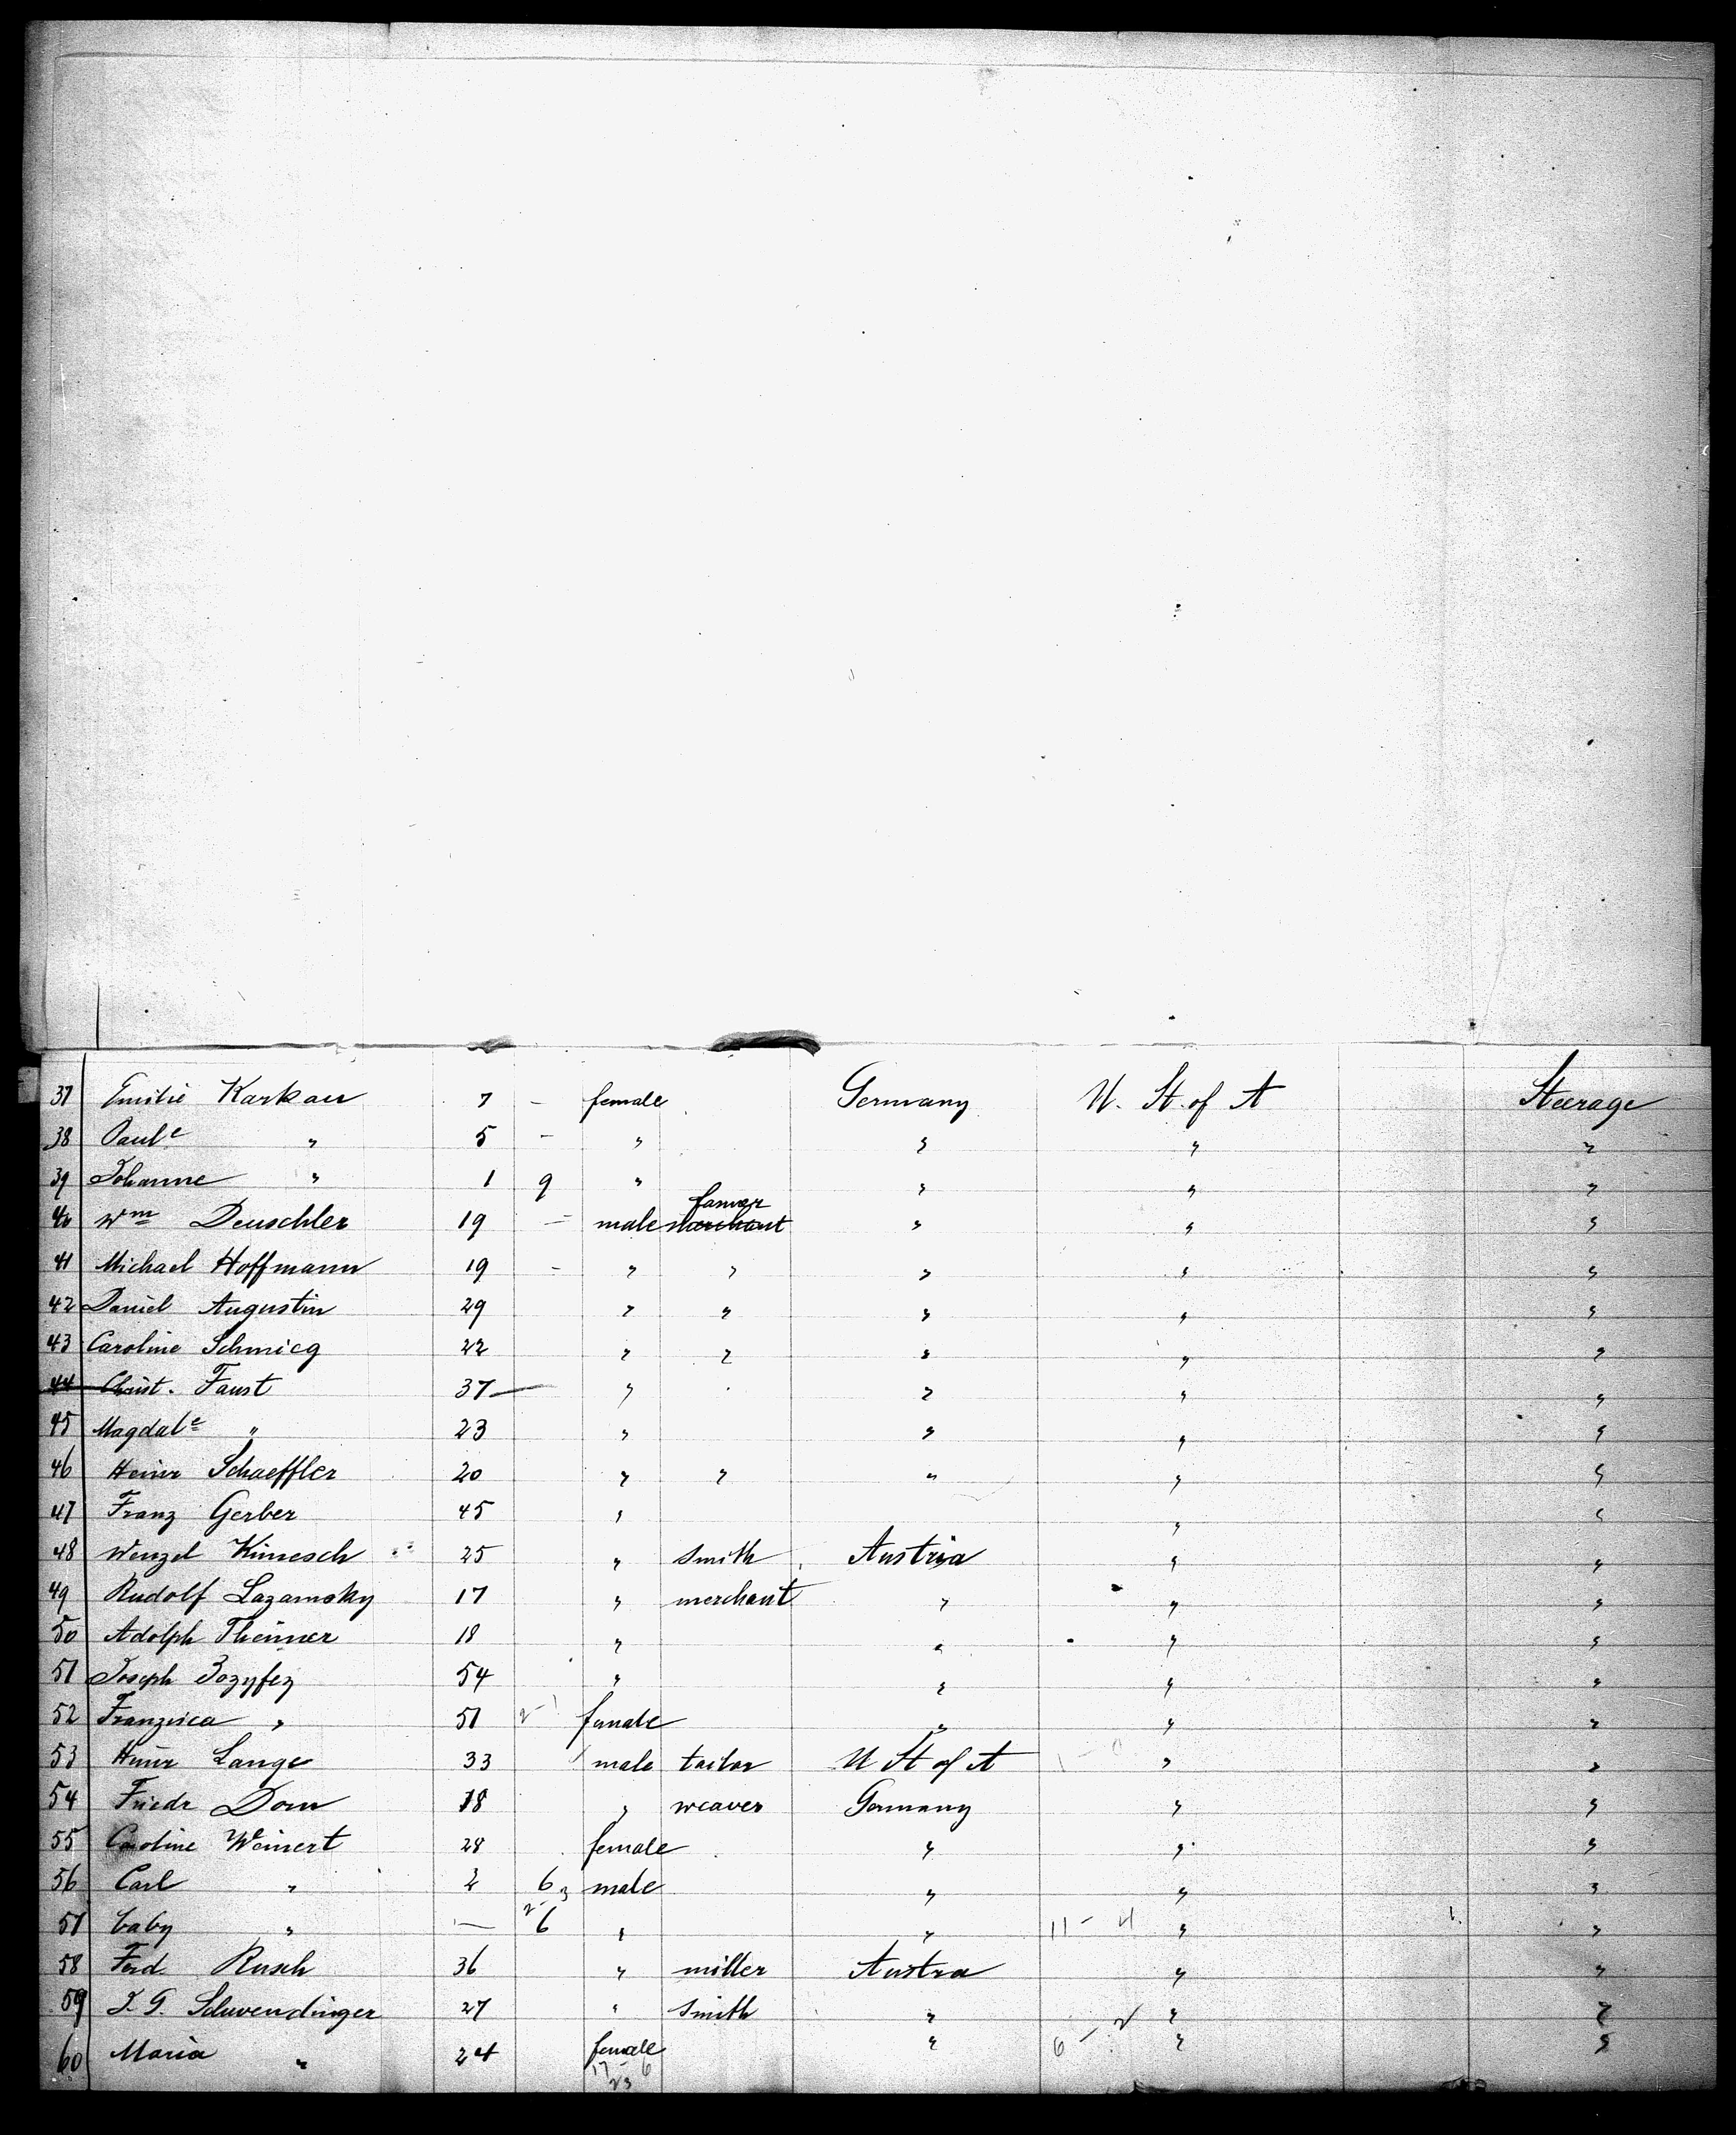 37 Emilie Karkau 7 – female Germany U. St. of A Steerage
38 Paule " 5 – " " " "
39 Johanne " 1 9 " " " "
farmer
40 Wm Deuschler 19 – male merchant " " "
41 Michael Hoffmann 19 – " " " " "
42 Daniel Augustin 29 " " " " "
43 Caroline Schmieg 22 " " " " "
44 Christ. Faust 37 — " " " "
45 Magdale " 23 " " " "
46 Heinr Schaeffler 20 " " " " "
47 Franz Gerber 45 " " "
48 Wenzel Kimesch 25 " smith Austria " "
49 Rudolf Lazamsky 17 " merchant " " "
50 Adolph Theimer 18 " " " "
51 Joseph 54 " " " "
52 Franzisca " 51 female " " "
53 Heinr Lange 33 male tailor U St of A " "
54 Friedr Dorn 18 " weaver Germany " "
55 Caroline Weinert 28 female " " "
56 Carl " 2 6 male " " "
57 baby " — 6 " " 11 – 4 " "
58 Ferd. Rusch 36 " miller Austra " "
59 J. G. Schwendinger 27 " smith " " "
60 Maria " 24 female " 6 – " "
17 – 6
23